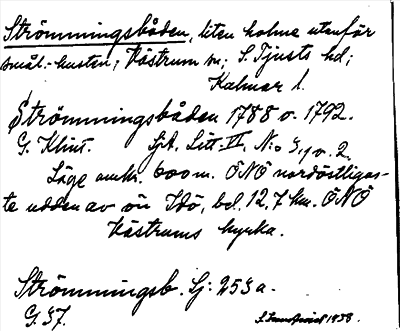 Strömmingsbåden, liten holme utanför
smål.-kusten; Västrum sn; S. Tjusts hd;
Kalmar l.
Strömmingsbåden 1788 o. 1792.
G. Klint. SjA. Litt. II, N:o 3,
Läge omkr. 600 m. ÖNÖ nordöstligas-
te udden av ön Idö, bel. 12,7 km. ÖNÖ
Västrums kyrka.
Strömmingsb. Sj: 253 a.
G. 37. 1938.